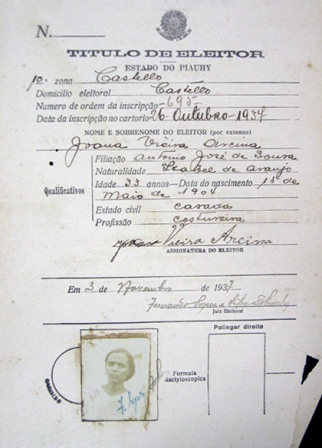 N.
TITULO DE ELEITOR
ESTADO DO PIAUHY
1ª zona Castello
Domicilio eleitoral Castello
Numero de ordem da inscripção -695-
Data da inscripção no cartorio 26 Outubro-1937
NOME E SOBRENOME DO ELEITOR (por extenso)
Joana Vieira Arcina
Qualificativos
Filiação Antonio José de Sousa
Naturalidade Izabel de Araujo
Idade 33 annos—Data do nascimento 1º de
Maio de 1904
Estado civil casada
Profissão costureira
Joana Vieira Arcina
ASSIGNATURA DO ELEITOR
Em 3 de Novembro de 1937
Juiz Eleitoral
Pollegar direito
Formula
dactyloscopica